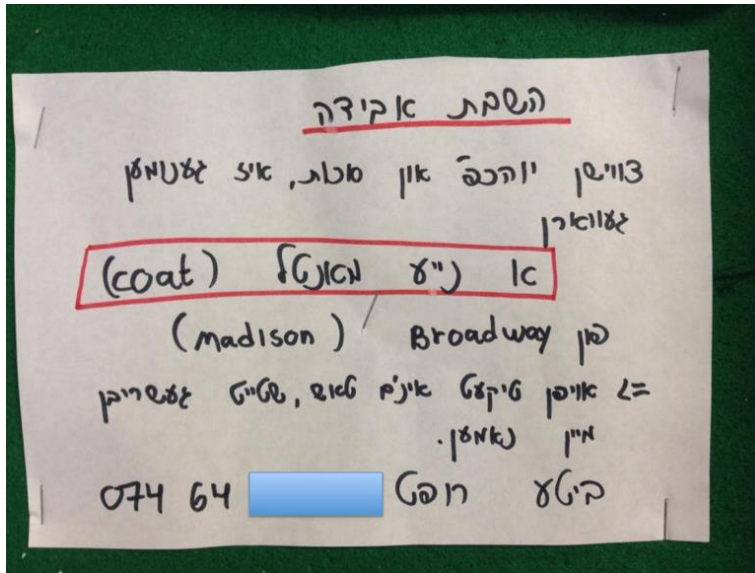 השבת אבידה
צווישן יוהכפ" און סוכות, איז גענומען
געווארן
א נייע מאנטל (coat)
פון Broadway (Madison)
=> אויפן טיקעט אינ'ם טאש, שטייט געשריבן
מיין נאמען.
ביטע רופט 074 64